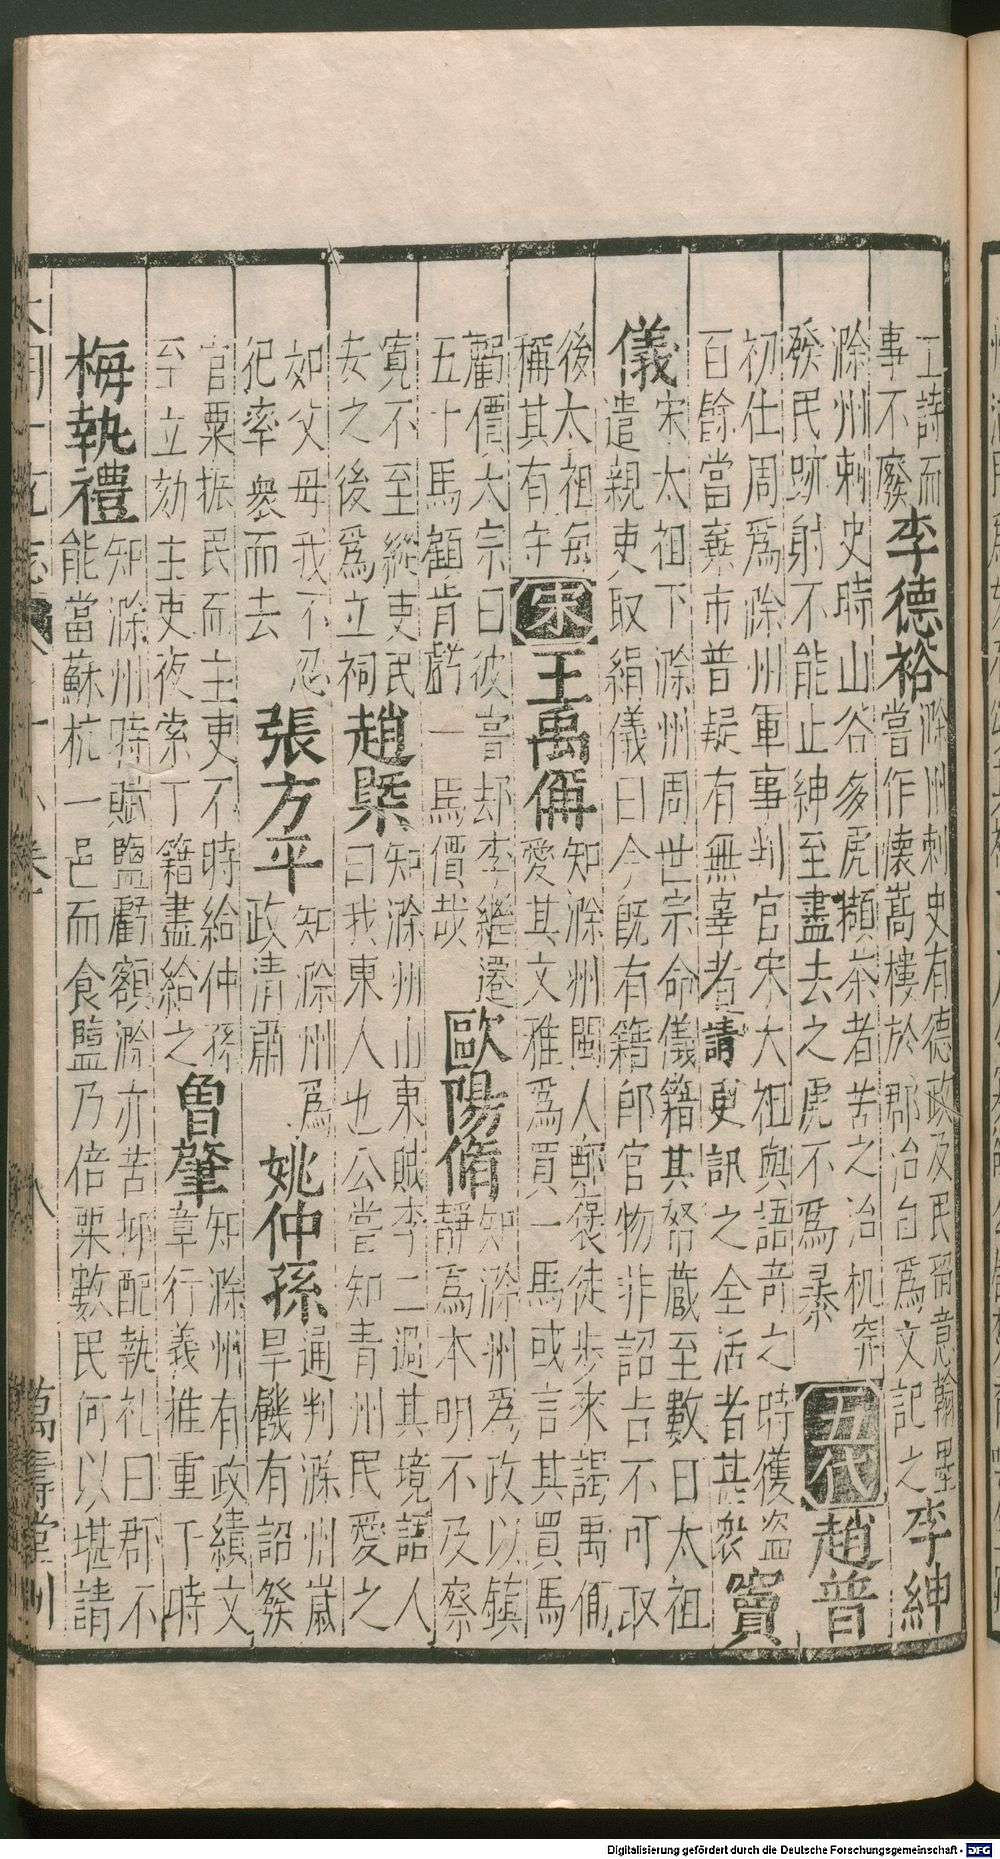 工詩而
事不廢
李德裕
滁州刺史有德政及民留意翰墨
嘗作懷嵩樓於郡治自為文記之
李紳
滁州刺史時山谷多虎擷茶者苦之治机穽
發民跡射不能止紳至盡去之虎不爲暴
五代
趙普
初仕周爲滁州軍事判官宋太祖與語奇之時獲盜
百餘當棄市普疑有無辜者請更訊之全活者甚衆
竇
儀
宋太祖下滁州周世宗命儀籍其帑藏至數日太祖
遣親吏取絹儀曰今旣有籍卽官物非詔旨不可取
後太祖每
稱其有守
宋
王禹偁
知滁州閩人鄭褒徒步來謁禹偁
愛其文雅爲買一馬或言其買馬
虧價太宗曰彼嘗却李繼遷
五十馬顧肯虧一馬價哉
歐陽脩
知滁州爲政以鎮
靜爲本明不及察
寬不至縱吏民
安之後爲立祠
趙槩
知滁州山東賊李二過其境語人
曰我東人也公嘗知青州民愛之
如父母我不忍
犯率衆而去
張方平
知滁州爲
政清肅
姚仲孫
通判滁州歲
旱饑有詔發
官粟振民而主吏不時給仲孫
至立劾主吏夜索丁籍盡給之
魯肇
知滁州有政績文
章行義推重于時
梅執禮
知滁州時賦鹽虧額滁亦苦抑配執礼曰郡不
能當蘇杭一邑而食鹽乃倍粟數民何以堪請
大明一統志
卷十
八
萬壽堂刊
Digitalisierung gefördert durch die Deutsche Forschungsgemeinschaft - DFG